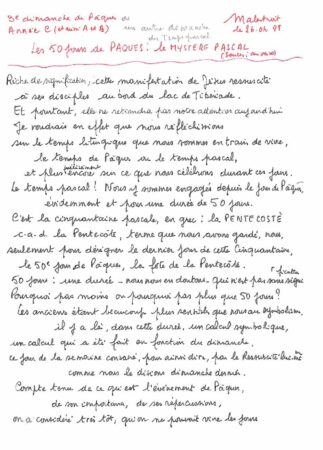 3e dimanche de Pâques
ou un autre dimanche
du Temps pascal
Année C (et aussi A et B)
Malestroit
le 26.04.98
Les 50 jours de PÂQUES : le MYSTÈRE PASCAL
Riche de signification, cette manifestation de Jésus ressuscité
à ses disciples au bord du lac de Tibériade.
Et pourtant, elle ne retiendra pas notre attention aujourd'hui
Je voudrais en effet que nous réfléchissions
sur le temps liturgique que nous sommes en train de vivre,
le temps de Pâques ou le temps pascal,
et plus précisément encore sur ce que nous célébrons durant ces jours.
Le temps pascal ! Nous y sommes engagés depuis le jour de Pâques,
évidemment et pour une durée de 50 jours.
C'est la cinquantaine pascale, en grec : la PENTECOSTÉ
c.a.d. la Pentecôte, terme que nous avons gardé, nous,
seulement pour désigner le dernier jour de cette Cinquantaine,
le 50e jour de Pâques, la fête de la Pentecôte.
50 jours : une durée - nous nous en doutons qui n'est pas sans signification
Pourquoi pas moins ou pourquoi pas plus que 50 jours ?
Les anciens étaient beaucoup plus sensibles que nous au symbolisme,
il y a là, dans cette durée, un calcul symbolique,
un calcul qui a été fait en fonction du dimanche.
ce jour de la semaine consacré, pour ainsi dire, par le Ressuscité lui-même
comme nous le disions dimanche dernier.
Compte tenu de ce qu'est l'événement de Pâques,
de son importance, de ses répercussions,
on a considéré très tôt, qu'on ne pouvait vivre les jours